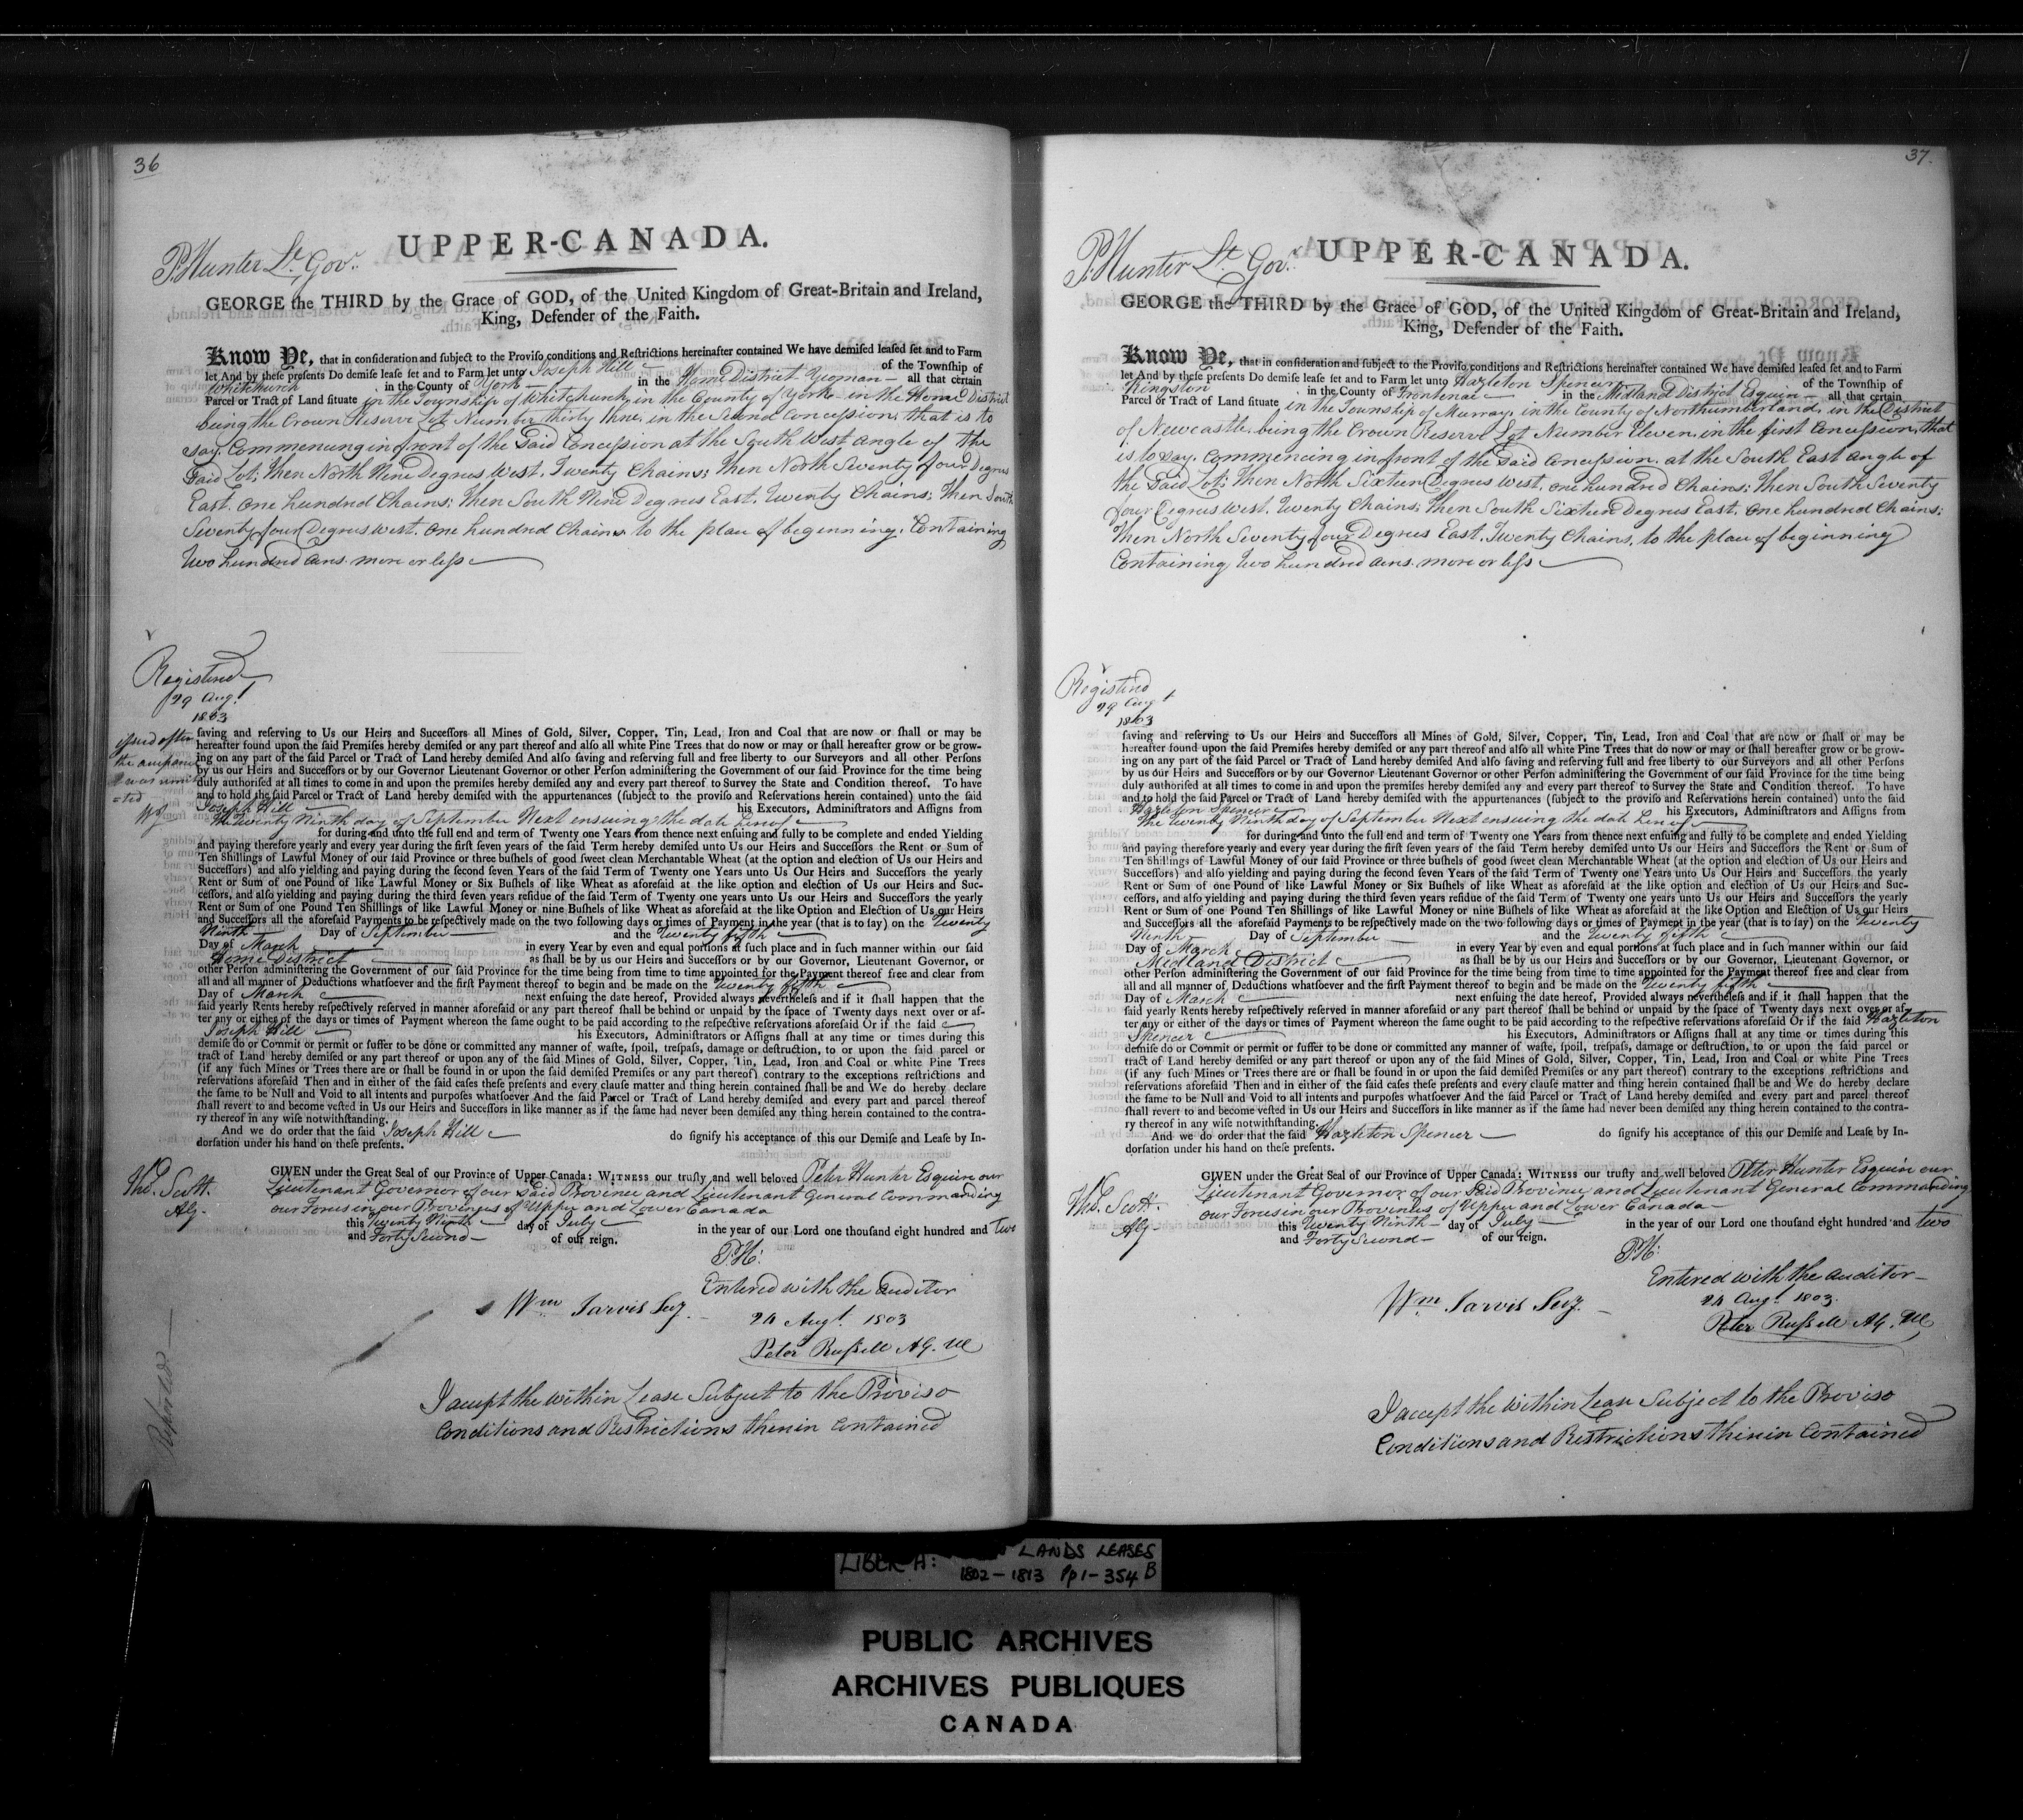 36
P. Hunter Lt. Gov.
UPPER-CANADA.
GEORGE the THIRD by the Grace of GOD, of the United Kingdom of Great-Britain and Ireland,
King, Defender of the Faith.
Know Ye, that in consideration and subject to the Proviso conditions and Restrictions hereinafter contained We have demised leased set and to Farm
let And by these presents Do demise lease set and to Farm let unto Joseph Hill of the Township of
Whitchurch in the County of York in the Home District Yeoman — all that certain
Parcel or Tract of Land situate in the Township of Whitchurch, in the County of York in the Home District
being the Crown Reserve Lot Number thirty three, in the Second Concession; that is to
say. Commencing in front of the said Concession at the South West angle of the
Said Lot; Then North Nine Degrees West, Twenty Chains; Then North Seventy four Degrees
East. One hundred Chains; Then South Nine Degrees East, Twenty Chains; Then South
Seventy four Degrees West. One hundred Chains to the place of beginning. Containing
Two hundred acres more or less
Registered
29 Augt
1803
issued after
it was
WJ
saving and reserving to Us our Heirs and Successors all Mines of Gold, Silver, Copper, Tin, Lead, Iron and Coal that are now or shall or may be
hereafter found upon the said Premises hereby demised or any part thereof and also all white Pine Trees that do now or may or shall hereafter grow or be grow-
ing on any part of the said Parcel or Tract of Land hereby demised And also saving and reserving full and free liberty to our Surveyors and all other Persons
by us our Heirs and Successors or by our Governor Lieutenant Governor or other Person administering the Government of our said Province for the time being
duly authorised at all times to come in and upon the premises hereby demised any and every part thereof to Survey the State and Condition thereof. To have
and to hold the said Parcel or Tract of Land hereby demised with the appurtenances (subject to the proviso and Reservations herein contained) unto the said
Joseph Hill his Executors, Administrators and Assigns from
the Twenty Ninth day of September Next ensuing the date hereof
for during and unto the full end and term of Twenty one Years from thence next ensuing and fully to be complete and ended Yielding
and paying therefore yearly and every year during the first seven years of the said Term hereby demised unto Us our Heirs and Successors the Rent or Sum of
Ten Shillings of Lawful Money of our said Province or three bushels of good sweet clean Merchantable Wheat (at the option and election of Us our Heirs and
Successors) and also yielding and paying during the second seven Years of the said Term of Twenty one Years unto Us Our Heirs and Successors the yearly
Rent or Sum of one Pound of like Lawful Money or Six Bushels of like Wheat as aforesaid at the like option and election of Us our Heirs and Suc-
cessors, and also yielding and paying during the third seven years residue of the said Term of Twenty one years unto Us our Heirs and Successors the yearly
Rent or Sum of one Pound Ten Shillings of like Lawful Money or nine Bushels of like Wheat as aforesaid at the like Option and Election of Us our Heirs
and Successors all the aforesaid Payments to be respectively made on the two following days or times of Payment in the year (that is to say) on the Twenty
Ninth Day of September and the Twenty fifth
Day of March in every Year by even and equal portions at such place and in such manner within our said
Home District as shall be by us our Heirs and Successors or by our Governor, Lieutenant Governor, or
other Person administering the Government of our said Province for the time being from time to time appointed for the Payment thereof free and clear from
all and all manner of Deductions whatsoever and the first Payment thereof to begin and be made on the Twenty fifth
Day of March next ensuing the date hereof, Provided always nevertheless and if it shall happen that the
said yearly Rents hereby respectively reserved in manner aforesaid or any part thereof shall be behind or unpaid by the space of Twenty days next over or af-
ter any or either of the days or times of Payment whereon the same ought to be paid according to the respective reservations aforesaid Or if the said
Joseph Hill his Executors, Administrators or Assigns shall at any time or times during this
demise do or Commit or permit or suffer to be done or committed any manner of waste, spoil, trespass, damage or destruction, to or upon the said parcel or
tract of Land hereby demised or any part thereof or upon any of the said Mines of Gold, Silver, Copper, Tin, Lead, Iron and Coal or white Pine Trees
(if any such Mines or Trees there are or shall be found in or upon the said demised Premises or any part thereof) contrary to the exceptions restrictions and
reservations aforesaid Then and in either of the said cases these presents and every clause matter and thing herein contained shall be and We do hereby declare
the same to be Null and Void to all intents and purposes whatsoever And the said Parcel or Tract of Land hereby demised and every part and parcel thereof
shall revert to and become vested in Us our Heirs and Successors in like manner as if the same had never been demised any thing herein contained to the contra-
ry thereof in any wise notwithstanding.
And we do order that the said Joseph Hill do signify his acceptance of this our Demise and Lease by In-
dorsation under his hand on these presents.
Tho. Scott.
AG.
GIVEN under the Great Seal of our Province of Upper Canada: WITNESS our trusty and well beloved Peter Hunter Esquire our
Lieutenant Governor of our said Province and Lieutenant General Commanding
our Forces in our Provinces of Upper and Lower Canada
this Twenty Ninth day of July in the year of our Lord one thousand eight hundred and two
and Forty Second of our reign.
P.H:
Entered with the Auditor
Wm Jarvis Secy.
24 Augt. 1803
Peter Russell AG.
I accept the within Lease Subject to the Proviso
Conditions and Restrictions therein Contained
Reported
37.
P. Hunter Lt. Gov.
UPPER-CANADA.
GEORGE the THIRD by the Grace of GOD, of the United Kingdom of Great-Britain and Ireland,
King, Defender of the Faith.
Know Ye, that in consideration and subject to the Proviso conditions and Restrictions hereinafter contained We have demised leased set and to Farm
let And by these presents Do demise lease set and to Farm let unto Hazleton Spencer of the Township of
Kingston in the County of Frontenac in the Midland District Esquire — all that certain
Parcel or Tract of Land situate in the Township of Murray, in the County of Northumberland, in the District
of Newcastle, being the Crown Reserve Lot Number Eleven, in the first Concession, that
is to say. Commencing in front of the said Concession. at the South East angle of
the Said Lot; Then North Sixteen Degrees West, One hundred Chains; Then South Seventy
four Degrees West, Twenty Chains; Then South Sixteen Degrees East, One hundred Chains;
Then North Seventy four Degrees East, Twenty Chains, to the place of beginning
Containing Two hundred acres more or less
Registered
29 Augt
1803
saving and reserving to Us our Heirs and Successors all Mines of Gold, Silver, Copper, Tin, Lead, Iron and Coal that are now or shall or may be
hereafter found upon the said Premises hereby demised or any part thereof and also all white Pine Trees that do now or may or shall hereafter grow or be grow-
ing on any part of the said Parcel or Tract of Land hereby demised And also saving and reserving full and free liberty to our Surveyors and all other Persons
by us our Heirs and Successors or by our Governor Lieutenant Governor or other Person administering the Government of our said Province for the time being
duly authorised at all times to come in and upon the premises hereby demised any and every part thereof to Survey the State and Condition thereof. To have
and to hold the said Parcel or Tract of Land hereby demised with the appurtenances (subject to the proviso and Reservations herein contained) unto the said
Hazleton Spencer his Executors, Administrators and Assigns from
the Twenty Ninth day of September Next ensuing the date hereof
for during and unto the full end and term of Twenty one Years from thence next ensuing and fully to be complete and ended Yielding
and paying therefore yearly and every year during the first seven years of the said Term hereby demised unto Us our Heirs and Successors the Rent or Sum of
Ten Shillings of Lawful Money of our said Province or three bushels of good sweet clean Merchantable Wheat (at the option and election of Us our Heirs and
Successors) and also yielding and paying during the second seven Years of the said Term of Twenty one Years unto Us Our Heirs and Successors the yearly
Rent or Sum of one Pound of like Lawful Money or Six Bushels of like Wheat as aforesaid at the like option and election of Us our Heirs and Suc-
cessors, and also yielding and paying during the third seven years residue of the said Term of Twenty one years unto Us our Heirs and Successors the yearly
Rent or Sum of one Pound Ten Shillings of like Lawful Money or nine Bushels of like Wheat as aforesaid at the like Option and Election of Us our Heirs
and Successors all the aforesaid Payments to be respectively made on the two following days or times of Payment in the year (that is to say) on the Twenty
Ninth Day of September and the Twenty fifth
Day of March in every Year by even and equal portions at such place and in such manner within our said
Midland District as shall be by us our Heirs and Successors or by our Governor, Lieutenant Governor, or
other Person administering the Government of our said Province for the time being from time to time appointed for the Payment thereof free and clear from
all and all manner of Deductions whatsoever and the first Payment thereof to begin and be made on the Twenty fifth
Day of March next ensuing the date hereof, Provided always nevertheless and if it shall happen that the
said yearly Rents hereby respectively reserved in manner aforesaid or any part thereof shall be behind or unpaid by the space of Twenty days next over or af-
ter any or either of the days or times of Payment whereon the same ought to be paid according to the respective reservations aforesaid Or if the said Hazleton
Spencer his Executors, Administrators or Assigns shall at any time or times during this
demise do or Commit or permit or suffer to be done or committed any manner of waste, spoil, trespass, damage or destruction, to or upon the said parcel or
tract of Land hereby demised or any part thereof or upon any of the said Mines of Gold, Silver, Copper, Tin, Lead, Iron and Coal or white Pine Trees
(if any such Mines or Trees there are or shall be found in or upon the said demised Premises or any part thereof) contrary to the exceptions restrictions and
reservations aforesaid Then and in either of the said cases these presents and every clause matter and thing herein contained shall be and We do hereby declare
the same to be Null and Void to all intents and purposes whatsoever And the said Parcel or Tract of Land hereby demised and every part and parcel thereof
shall revert to and become vested in Us our Heirs and Successors in like manner as if the same had never been demised any thing herein contained to the contra-
ry thereof in any wise notwithstanding.
And we do order that the said Hazleton Spencer do signify his acceptance of this our Demise and Lease by In-
dorsation under his hand on these presents.
Tho. Scott.
AG.
GIVEN under the Great Seal of our Province of Upper Canada: WITNESS our trusty and well beloved Peter Hunter Esquire our
Lieutenant Governor of our Said Province and Lieutenant General Commanding
our Forces in our Provinces of Upper and Lower Canada
this Twenty Ninth day of July in the year of our Lord one thousand eight hundred and two
and Forty Second of our reign.
P.H:
Entered with the Auditor
Wm Jarvis Secy.
24 Augt. 1803.
Peter Russell AG.
I accept the Within Lease Subject to the Proviso
Conditions and Restrictions therein Contained
LIBER A: LANDS LEASES
1802-1813 Pp 1-354 B
PUBLIC ARCHIVES
ARCHIVES PUBLIQUES
CANADA